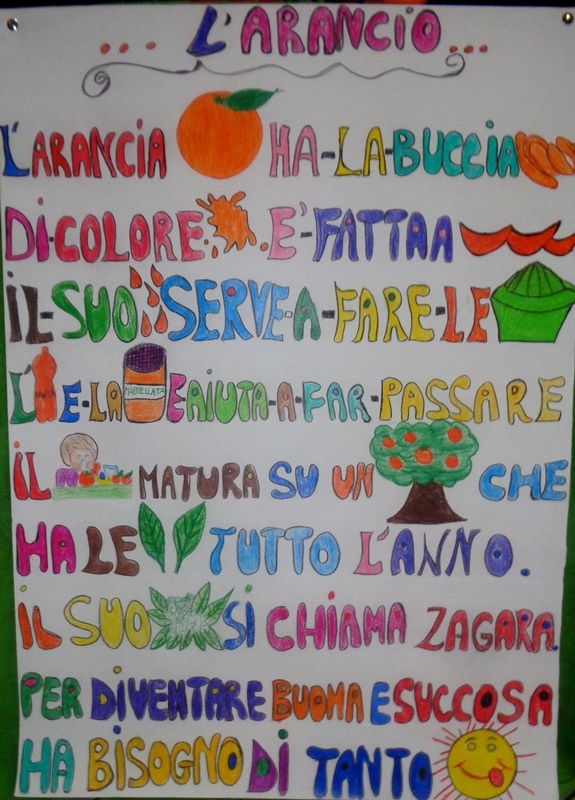 ... L'ARANCIO ...
L'ARANCIA HA-LA-BUCCIA
DI-COLORE E'-FATTA A
IL-SUO SERVE-A-FARE-LE
L' E-LA MARMELLATA E AIUTA-A-FAR-PASSARE
IL MATURA SU UN CHE
HA LE TUTTO L'ANNO.
IL SUO SI CHIAMA ZAGARA.
PER DIVENTARE BUONA E SUCCOSA
HA BISOGNO DI TANTO